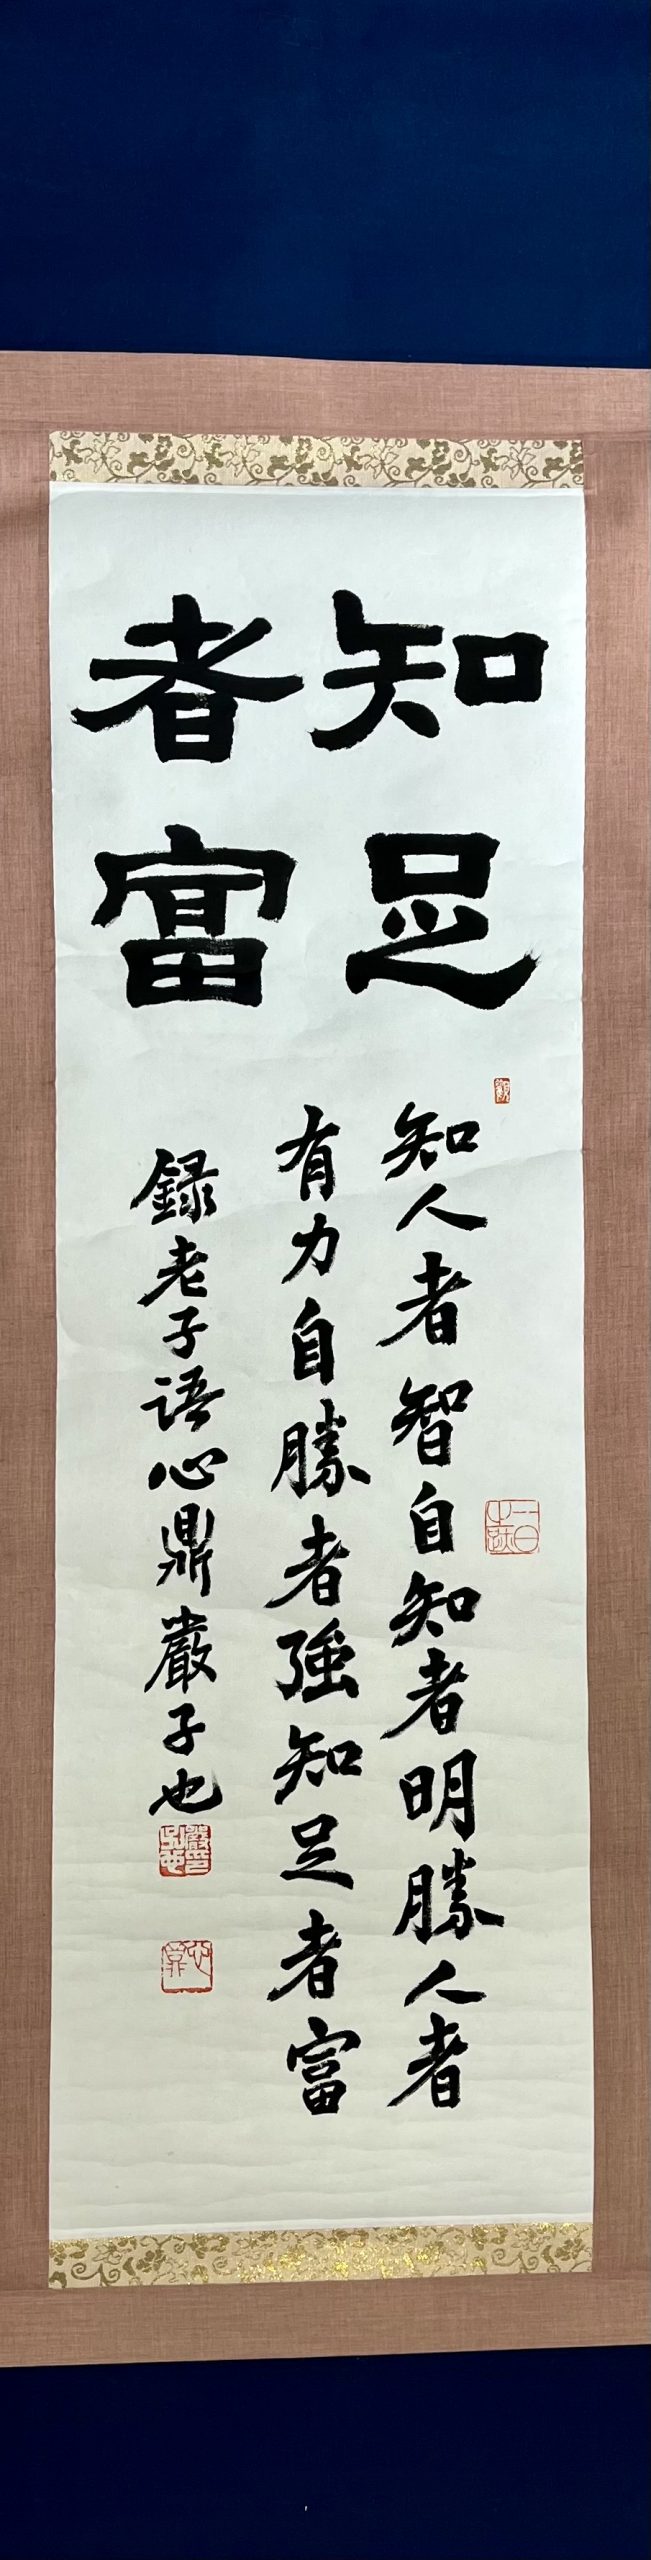 知足
者富
知人者智自知者明勝人者
有力自勝者強知足者富
録老子语心鼎嚴子也